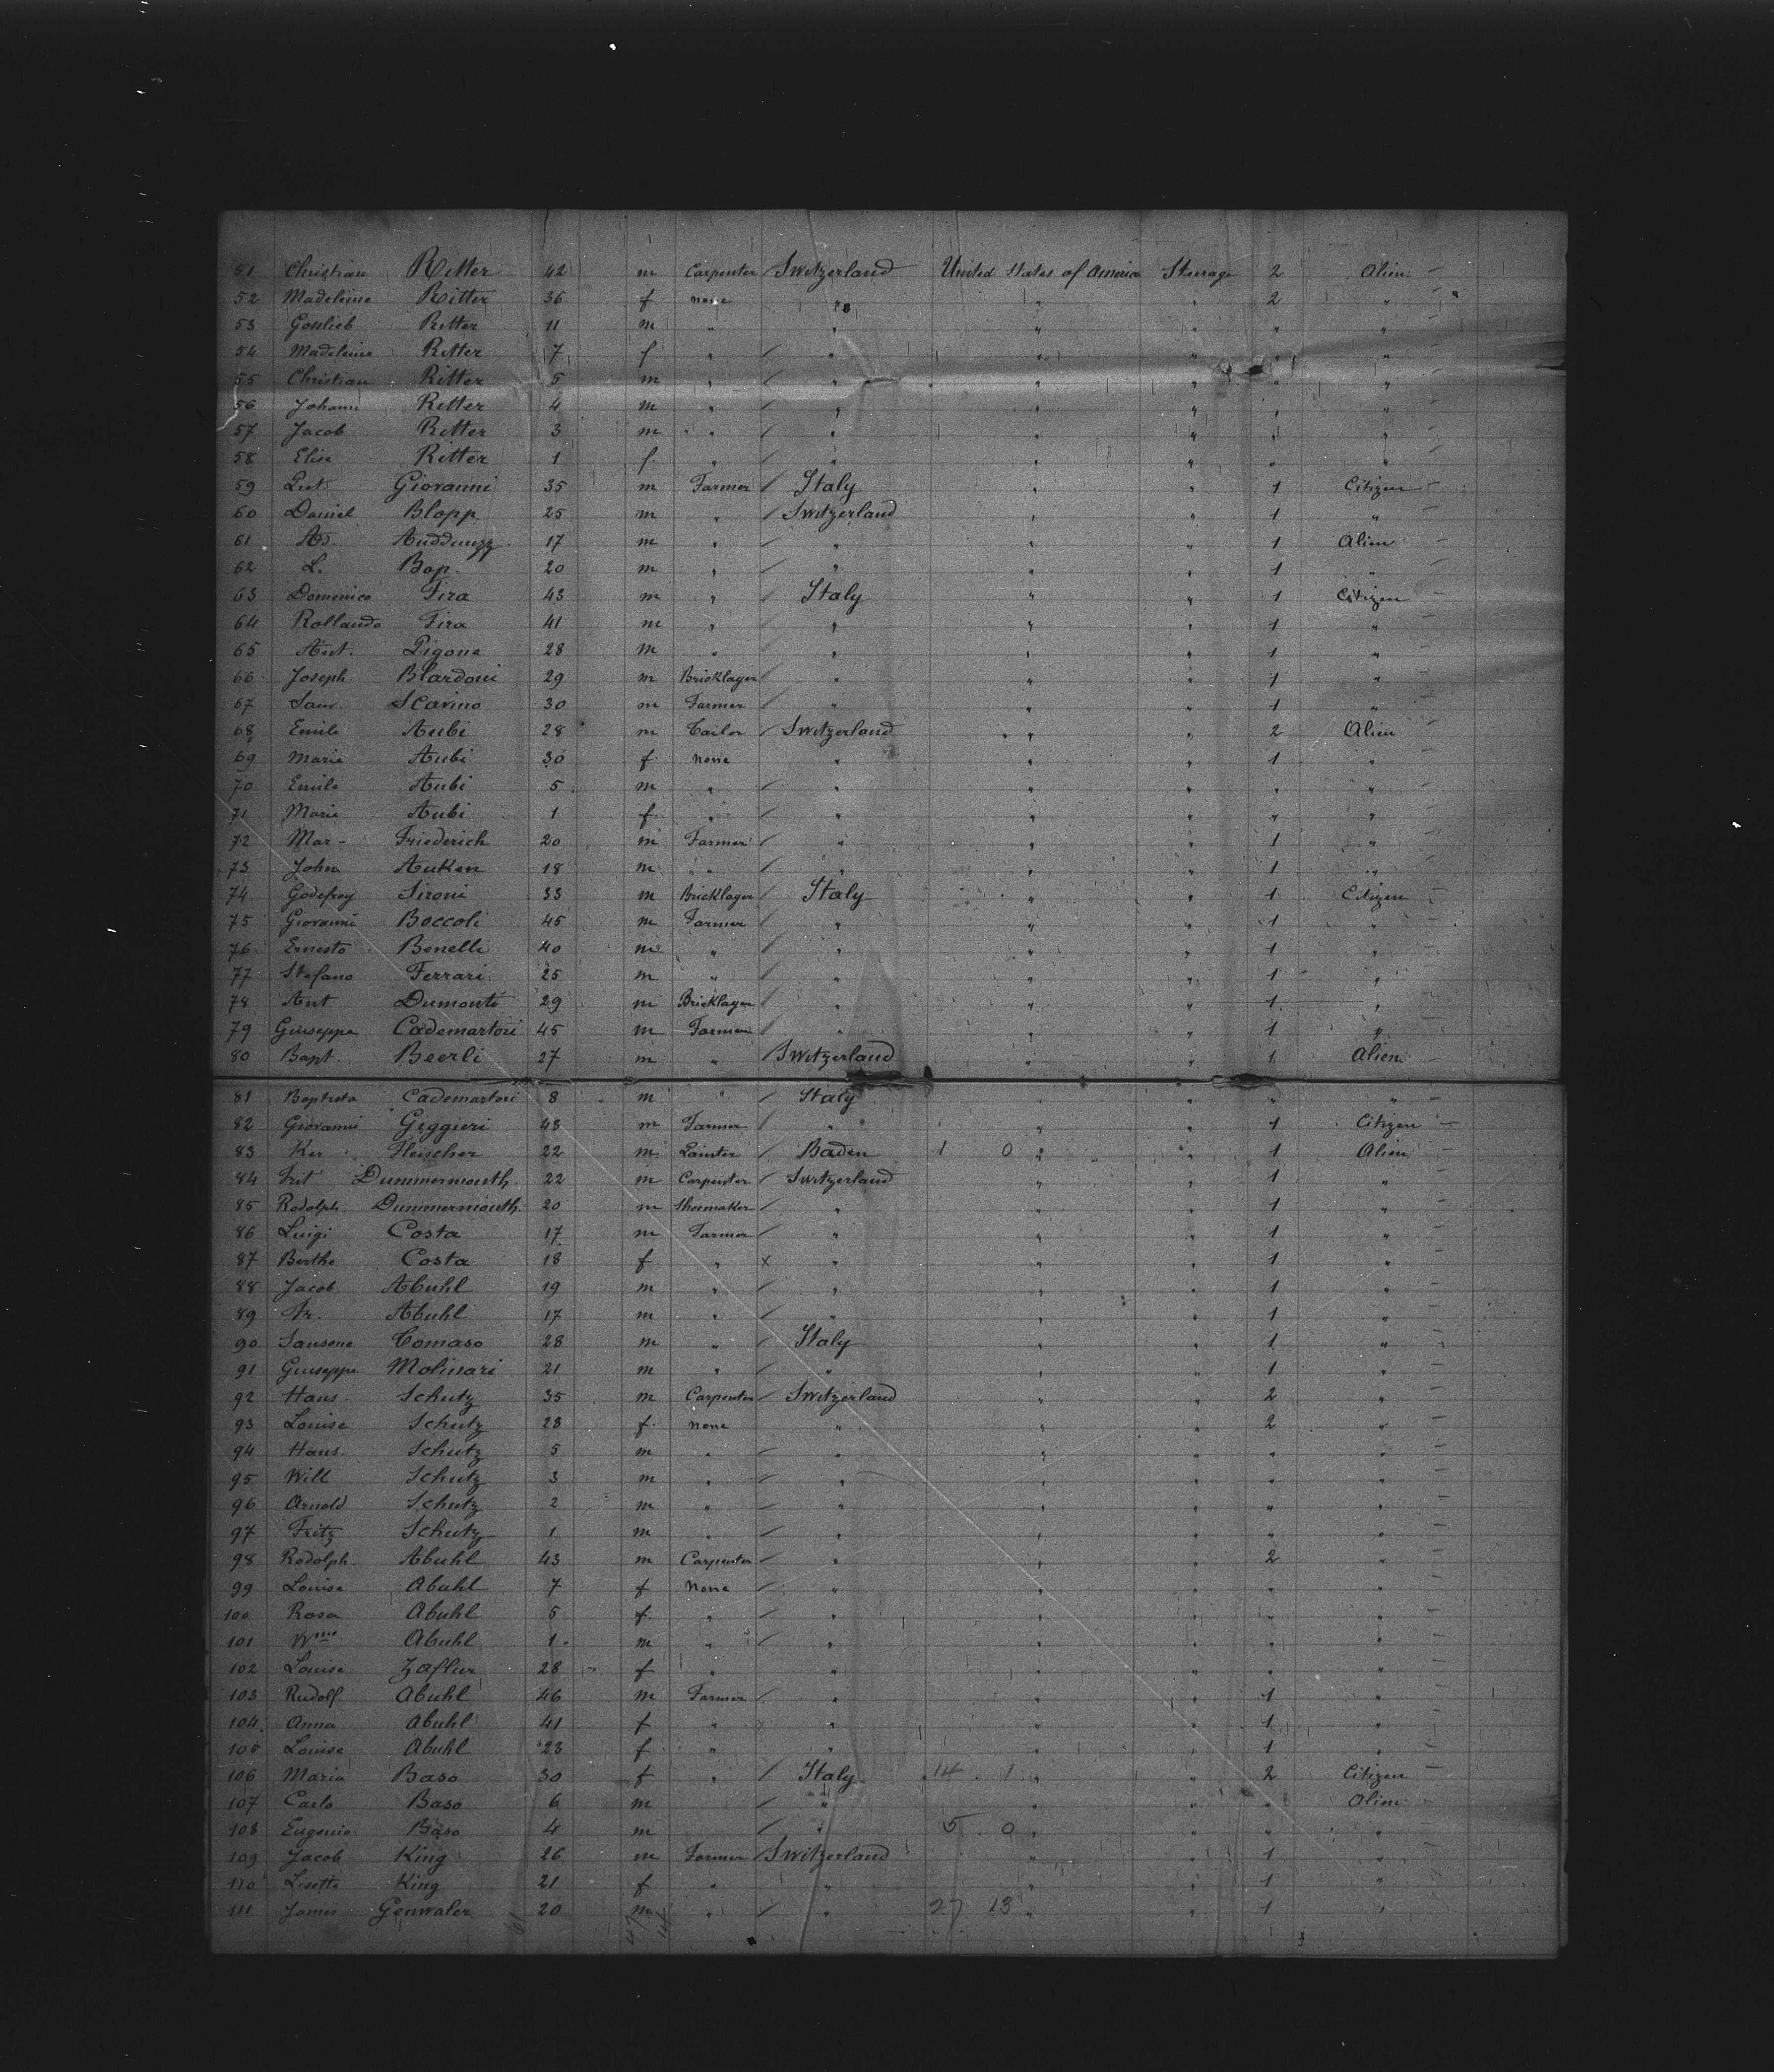 51 Christian Ritter 42 m Carpenter Switzerland United States of America Steerage 2 Alien -
52 Madeleine Ritter 36 f none " " " 2 " -
53 Gottlieb Ritter 11 m " " " " " " -
54 Madeleine Ritter 7 f " / " " " " " -
55 Christian Ritter 5 m " / " " " " " -
56 Johann Ritter 4 m " / " " " " " -
57 Jacob Ritter 3 m " / " " " " " -
58 Elise Ritter 1 f " / " " " " " -
59 Giovanni 35 m Farmer / Italy " " 1 Citizen -
60 Daniel Blopp 25 m " / Switzerland " " 1 " -
61 Ad. 17 m " / " " " 1 Alien -
62 L. Bop. 20 m " / " " " 1 " -
63 Domenico Fira 43 m " / Italy " " 1 Citizen -
64 Rollando Fira 41 m " / " " " 1 " -
65 Ant. Pigone 28 m " / " " " 1 " -
66 Joseph Blardoni 29 m Bricklayer / " " " 1 " -
67 Scarino 30 m Farmer / " " " 1 " -
68 Emile Aubi 28 m Tailor / Switzerland " " 2 Alien -
69 Marie Aubi 30 f none " " " 1 " -
70 Emile Aubi 5 m " / " " " " " -
71 Marie Aubi 1 f " / " " " " " -
72 Mar- Friederich 20 m Farmer / " " " 1 " -
73 John Auken 18 m " / " " " 1 " -
74 Godefroy Sironi 33 m Bricklayer / Italy " " 1 Citizen -
75 Giovanni Boccoli 45 m Farmer / " " " 1 " -
76 Ernesto Benelli 40 m " / " " " 1 " -
77 Stefano Ferrari 25 m " / " " " 1 " -
78 Ant Dumonti 29 m Bricklayer / " " " 1 " -
79 Giuseppe Cademartori 45 m Farmer / " " " 1 " -
80 Bapt. Beerli 27 m " Switzerland " " 1 Alien -
81 Baptista Cademartori 8 m " / Italy " " " " -
82 Giovanni Geggieri 43 m Farmer / " " " 1 Citizen -
83 Ker Fleischer 22 m Painter / Baden 1 0 " " 1 Alien -
84 Frit Dummermouth 22 m Carpenter / Switzerland " " 1 " -
85 Rodolph Dummermouth 20 m Shoemaker / " " " 1 " -
86 Luigi Costa 17 m Farmer / " " " 1 " -
87 Berthe Costa 18 f " x " " " 1 " -
88 Jacob Abuhl 19 m " / " " " 1 " -
89 Fr. Abuhl 17 m " / " " " 1 " -
90 Sansone Tomaso 28 m " / Italy " " 1 " -
91 Giuseppe Molinari 21 m " / " " " 1 " -
92 Hans Schutz 35 m Carpenter / Switzerland " " 2 " -
93 Louise Schutz 28 f none " " " 2 " -
94 Hans. Schutz 5 m " / " " " " " -
95 Will Schutz 3 m " / " " " " " -
96 Arnold Schutz 2 m " / " " " " " -
97 Fritz Schutz 1 m " / " " " " " -
98 Rodolph Abuhl 43 m Carpenter / " " " 2 " -
99 Louise Abuhl 7 f None / " " " " " -
100 Rosa Abuhl 5 f " / " " " " " -
101 Wme Abuhl 1 m " / " " " " " -
102 Louise Zaflur 28 f " " " " " " -
103 Rudolf. Abuhl 46 m Farmer / " " " 1 " -
104 Anna Abuhl 41 f " x " " " 1 " -
105 Louise Abuhl 23 f " " " " 1 " -
106 Maria Baso 30 f " / Italy 14 1 " " 2 Citizen -
107 Carlo Baso 6 m / " " " " Alien -
108 Eugenio Baso 4 m / " 5 0 " " " " -
109 Jacob King 26 m Farmer / Switzerland " " 1 " -
110 Lisette King 21 f " " " " 1 " -
111 James Genwaler 20 m " / " 27 13 " " 1 " -
61 47 14